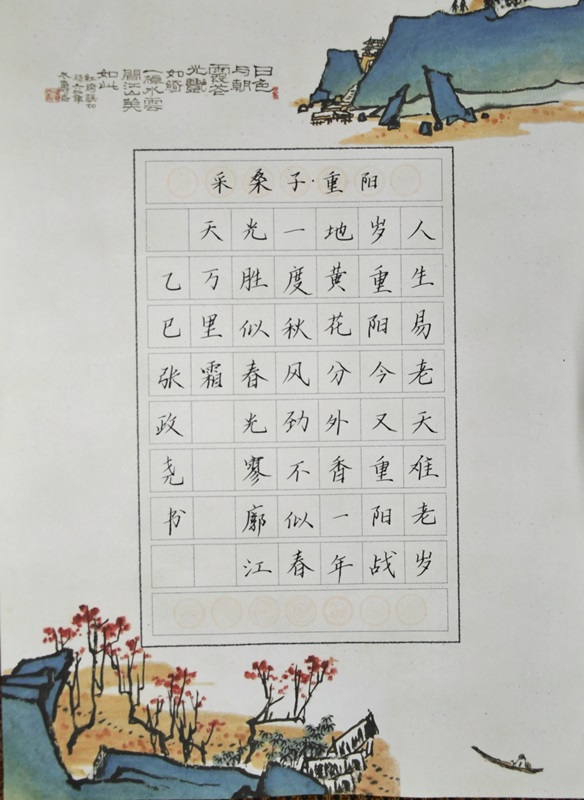 采桑子·重阳
人生易老天难老岁
岁重阳今又重阳战
地黄花分外香一年
一度秋风劲不似春
光胜似春光寥廓江
天万里霜
乙巳张政尧书
日色
与朝
一
水雲
江山美
如此